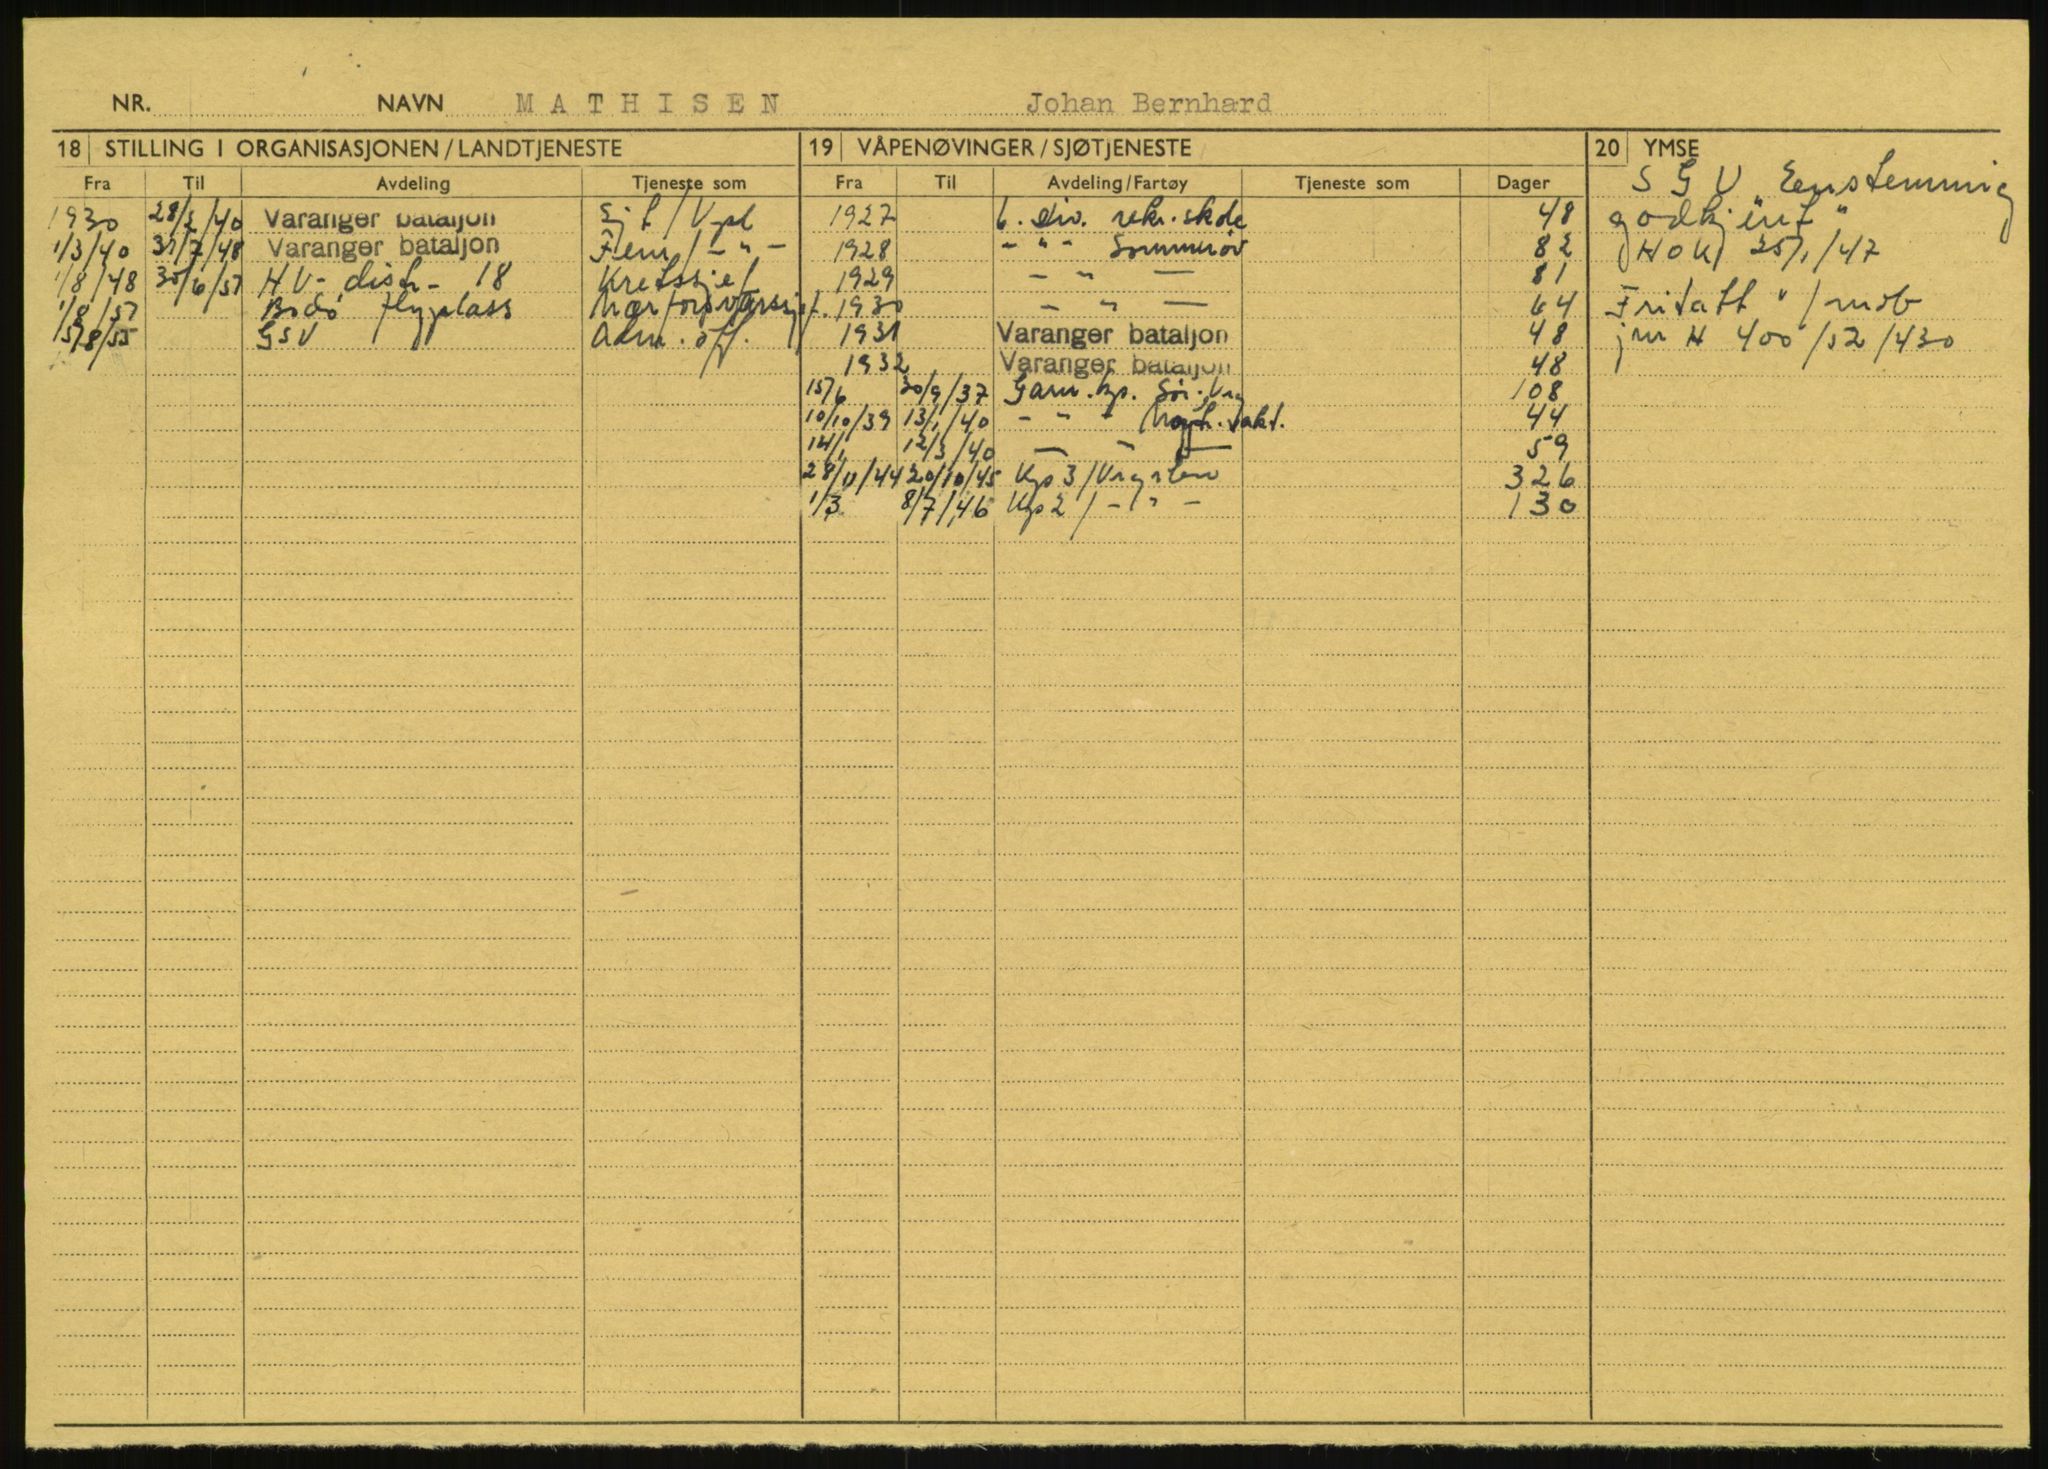 NR. NAVN MATHISEN Johan Bernhard
18 STILLING I ORGANISASJONEN/LANDTJENESTE
Fra Til Avdeling Tjeneste som
1930 28/2/40 Varanger bataljon Sjt/Vpl
1/3/40 31/7/48 Varanger bataljon Fenr/-"-
1/8/48 30/6/51 HV-distr. 18 Kretssjef
1/8/51 Bodø flyplass Nærforsvarssjef.
15/8/55 GSV Adm. off.
19 VÅPENØVINGER/SJØTJENESTE
Fra Til Avdeling/Fartøy Tjeneste som Dager
1927 6. div. rekr.skole 48
1928 -"- Sommerøv 82
1929 -"- 81
1930 -"- 64
1931 Varanger bataljon 48
1932 Varanger bataljon 48
15/6 30/9/37 Garn.kp. Sør.Vrg 108
10/10/39 13/1/40 -"- 44
14/1 12/3/40 59
28/11/44 20/10/45 Kp 3/Vrgrbn 326
1/3 8/7/46 Kp 2/-"- 130
20 YMSE
SGV "Eenstemmig
godkjent"
(HOK) 25/1/47
Fritatt v/mob
jnr H 400/52/430